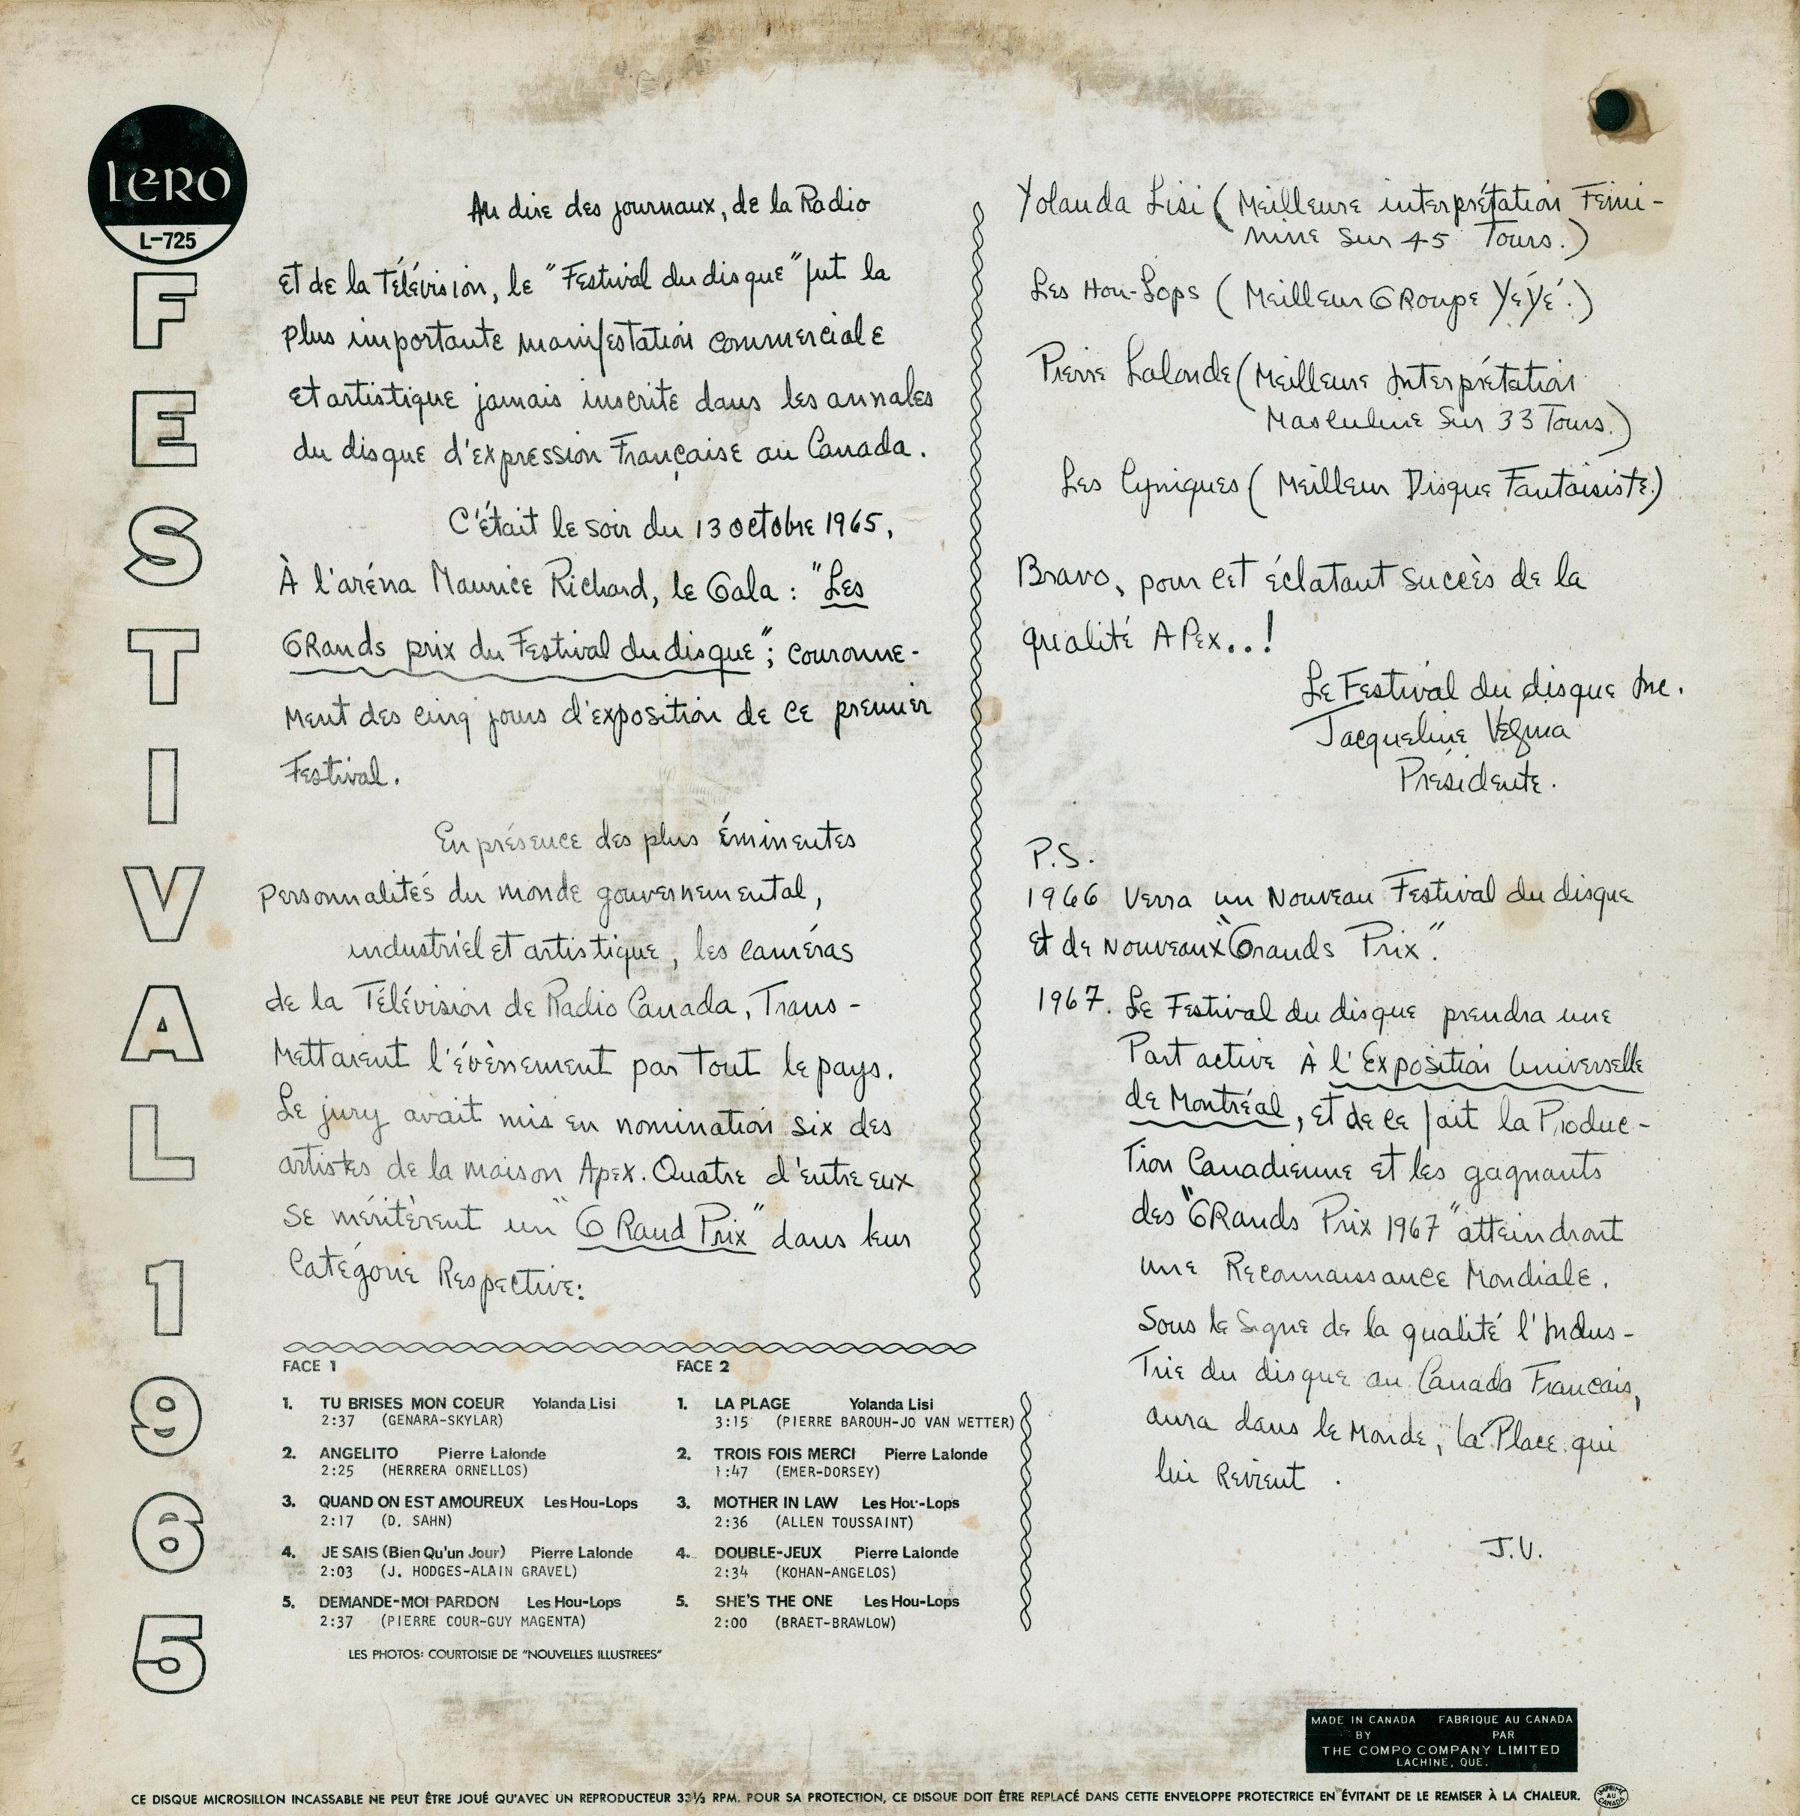 LERO
L-725
FESTIVAL 1965
Au dire des journaux, de la Radio
Et de la Télévision, le "Festival du disque" fut la
plus importante manifestation commerciale
Et artistique jamais inscrite dans les annales
du disque d'expression Française au Canada.
C'était le soir du 13 octobre 1965,
À l'aréna Maurice Richard, le Gala : "Les
GRands prix du Festival du disque"; couronne-
Ment des cinq jours d'exposition de ce premier
Festival.
En présence des plus éminentes
Personnalités du monde gouvernemental,
industriel et artistique, les caméras
de la Télévision de Radio Canada, Trans-
Mettaient l'évènement par tout le pays.
Le jury avait mis en nomination six des
artistes de la maison Apex. Quatre d'entre eux
se méritèrent un "GRand Prix" dans leur
Catégorie Respective:
Yolanda Lisi (Meilleure interprétation Fémi-
nine sur 45 Tours.)
Les Hou-Lops (Meilleur GRoupe YéYé.)
Pierre Lalonde (Meilleure Interprétation
Masculine Sur 33 Tours.)
Les Cyniques (Meilleur Disque Fantaisiste.)
Bravo, pour cet éclatant succès de la
qualité APex...!
Le Festival du disque Inc.
Jacqueline Vézina
Présidente.
P.S.
1966 Verra un Nouveau Festival du disque
Et de Nouveaux "Grands Prix".
1967. Le Festival du disque prendra une
Part active À l'Exposition Universelle
de Montréal, et de ce fait la Produc-
Tion Canadienne et les gagnants
des "GRands Prix 1967" atteindront
une Reconnaissance Mondiale.
Sous le Signe de la qualité l'Indus-
Trie du disque au Canada Francais,
aura dans le Monde, la Place qui
lui Revient.
J.V.
FACE 1
1. TU BRISES MON COEUR Yolanda Lisi
2:37 (GENARA-SKYLAR)
2. ANGELITO Pierre Lalonde
2:25 (HERRERA ORNELLOS)
3. QUAND ON EST AMOUREUX Les Hou-Lops
2:17 (D. SAHN)
4. JE SAIS (Bien Qu'un Jour) Pierre Lalonde
2:03 (J. HODGES-ALAIN GRAVEL)
5. DEMANDE-MOI PARDON Les Hou-Lops
2:37 (PIERRE COUR-GUY MAGENTA)
FACE 2
1. LA PLAGE Yolanda Lisi
3:15 (PIERRE BAROUH-JO VAN WETTER)
2. TROIS FOIS MERCI Pierre Lalonde
1:47 (EMER-DORSEY)
3. MOTHER IN LAW Les Hou-Lops
2:36 (ALLEN TOUSSAINT)
4. DOUBLE-JEUX Pierre Lalonde
2:34 (KOHAN-ANGELOS)
5. SHE'S THE ONE Les Hou-Lops
2:00 (BRAET-BRAWLOW)
LES PHOTOS: COURTOISIE DE "NOUVELLES ILLUSTREES"
MADE IN CANADA FABRIQUE AU CANADA
BY PAR
THE COMPO COMPANY LIMITED
LACHINE, QUE.
CE DISQUE MICROSILLON INCASSABLE NE PEUT ÊTRE JOUÉ QU'AVEC UN REPRODUCTEUR 33⅓ RPM. POUR SA PROTECTION, CE DISQUE DOIT ÊTRE REPLACÉ DANS CETTE ENVELOPPE PROTECTRICE EN ÉVITANT DE LE REMISER À LA CHALEUR.
IMPRIMÉ AU CANADA